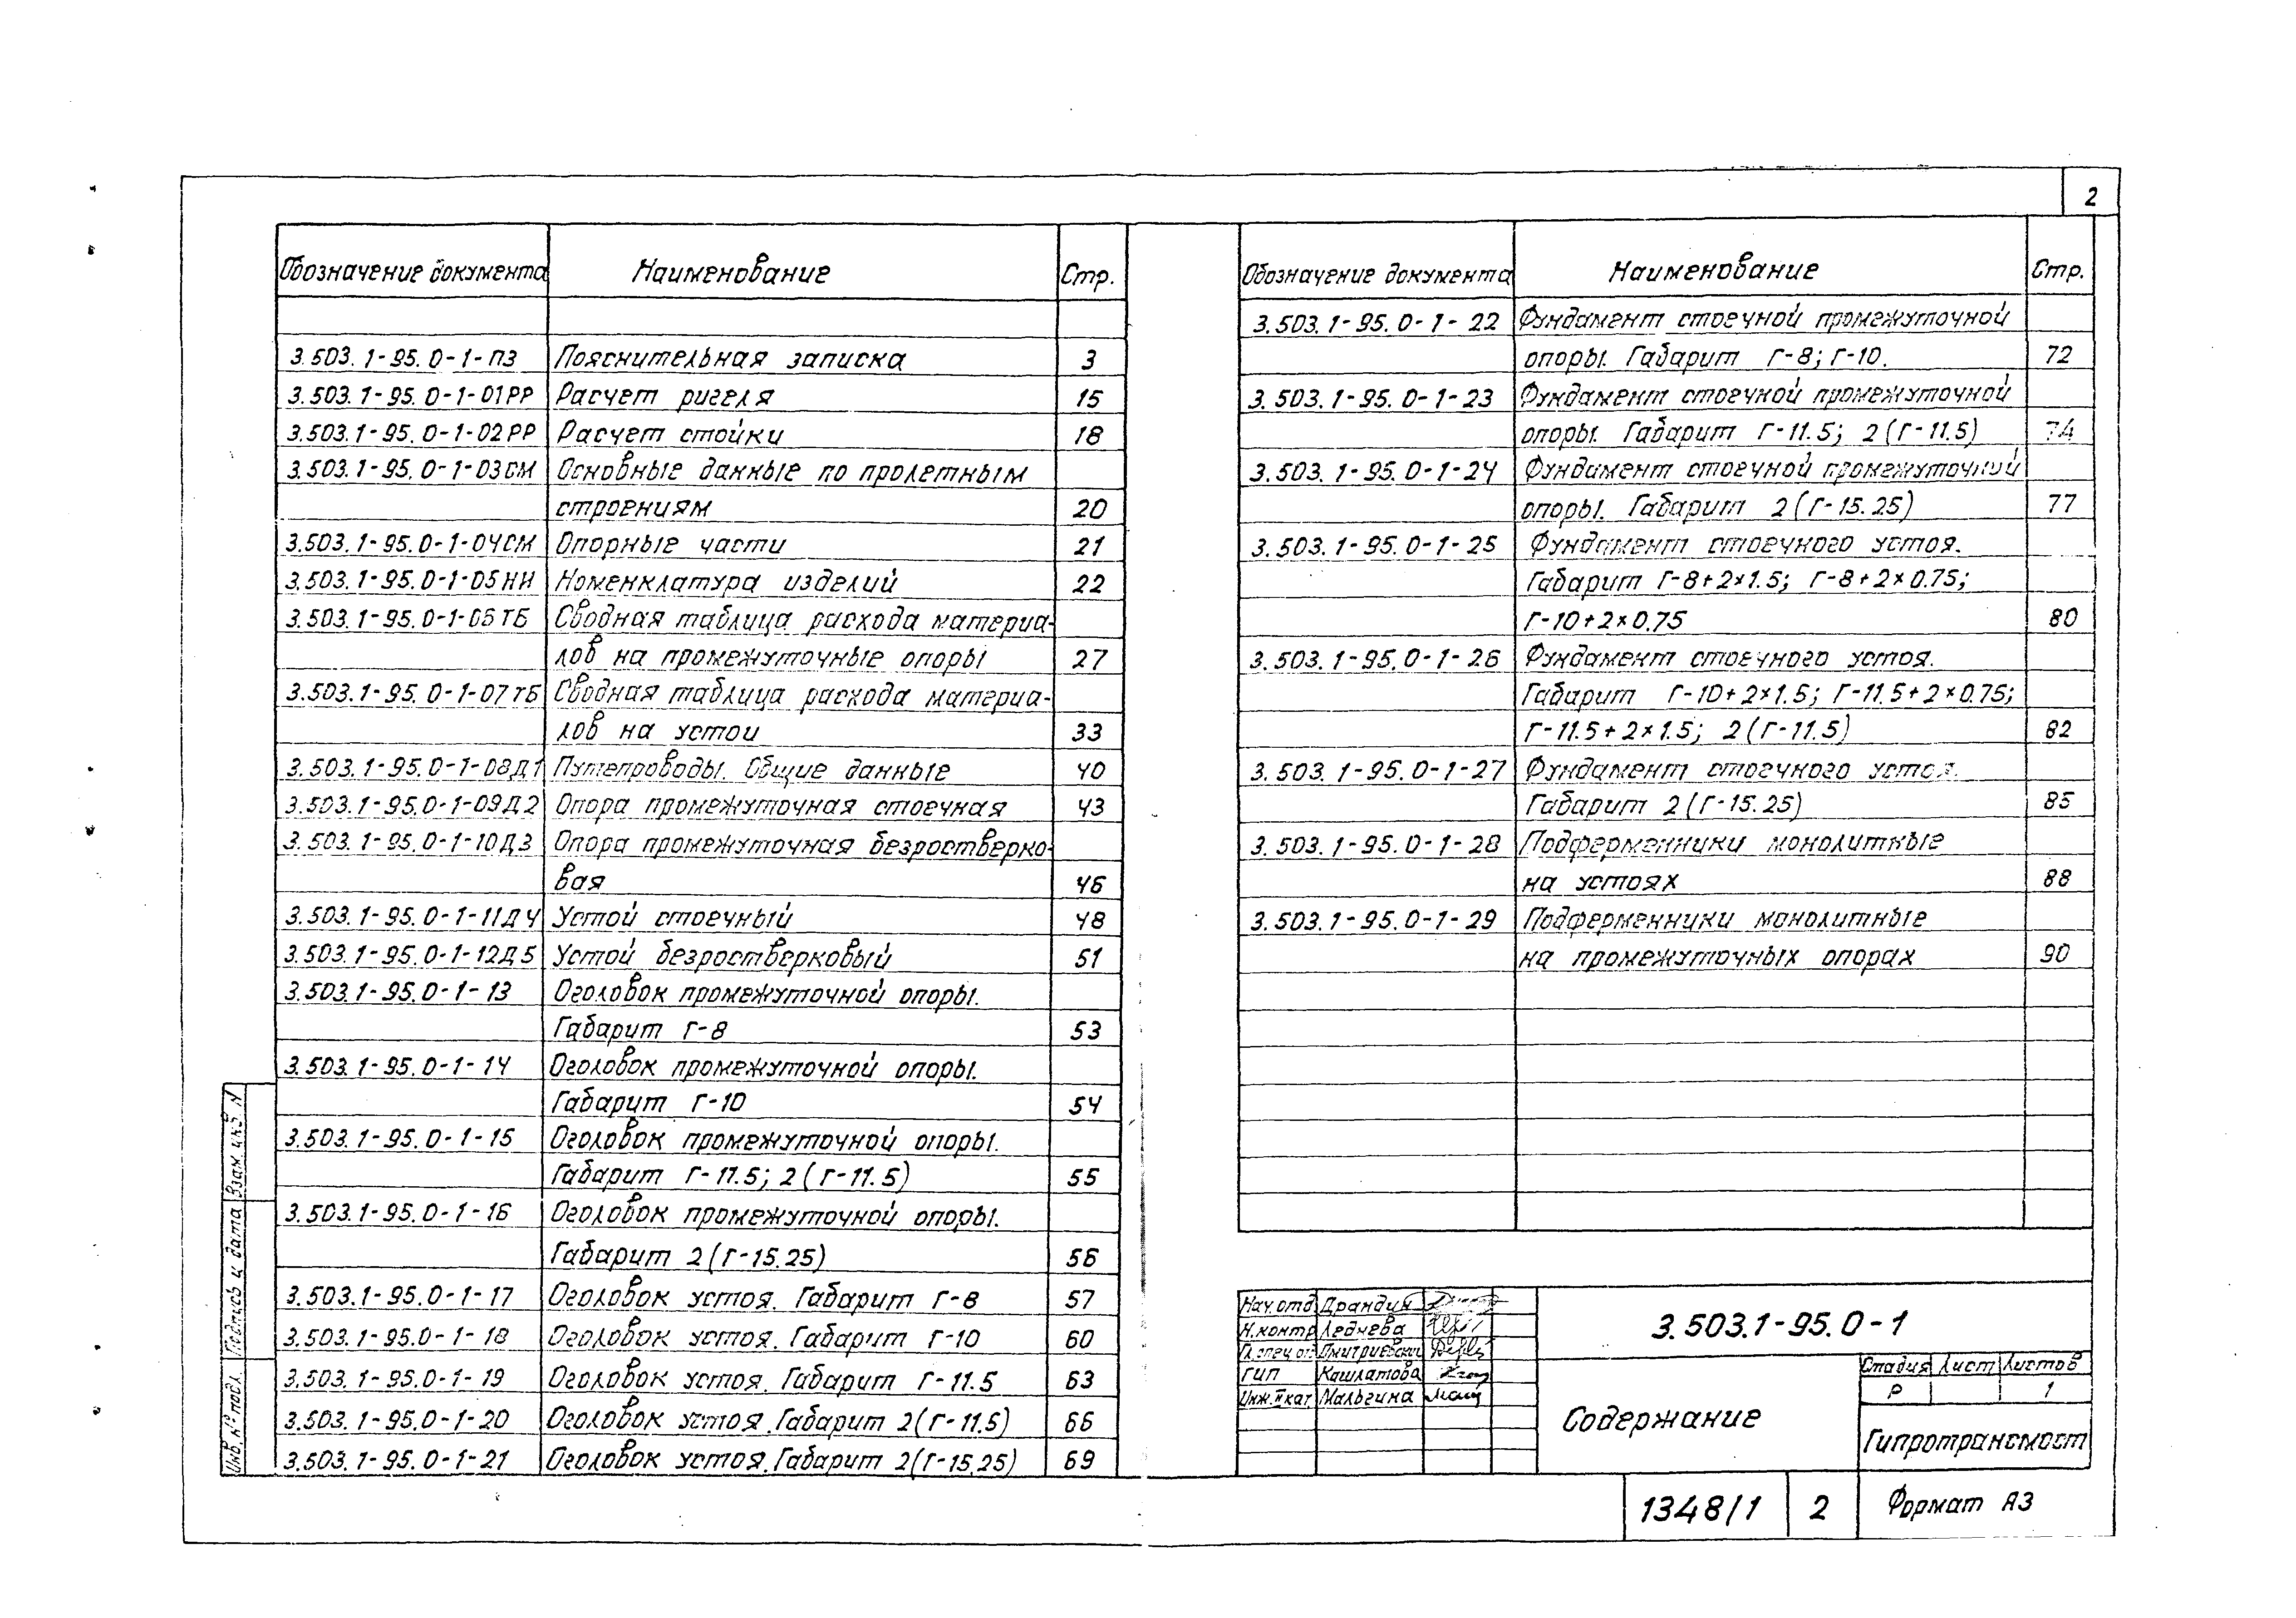 2
Обозначение документа Наименование Стр.
3.503.1-95.0-1-ПЗ Пояснительная записка 3
3.503.1-95.0-1-01РР Расчет ригеля 15
3.503.1-95.0-1-02РР Расчет стойки 18
3.503.1-95.0-1-03СМ Основные данные по пролетным
строениям 20
3.503.1-95.0-1-04СМ Опорные части 21
3.503.1-95.0-1-05НИ Номенклатура изделий 22
3.503.1-95.0-1-06ТБ Сводная таблица расхода материа-
лов на промежуточные опоры 27
3.503.1-95.0-1-07ТБ Сводная таблица расхода материа-
лов на устои 33
3.503.1-95.0-1-08Д1 Путепроводы. Общие данные 40
3.503.1-95.0-1-09Д2 Опора промежуточная стоечная 43
3.503.1-95.0-1-10Д3 Опора промежуточная безростверко-
вая 46
3.503.1-95.0-1-11Д4 Устой стоечный 48
3.503.1-95.0-1-12Д5 Устой безростверковый 51
3.503.1-95.0-1-13 Оголовок промежуточной опоры.
Габарит Г-8 53
3.503.1-95.0-1-14 Оголовок промежуточной опоры.
Габарит Г-10 54
3.503.1-95.0-1-15 Оголовок промежуточной опоры.
Габарит Г-11.5; 2(Г-11.5) 55
3.503.1-95.0-1-16 Оголовок промежуточной опоры.
Габарит 2(Г-15.25) 56
3.503.1-95.0-1-17 Оголовок устоя. Габарит Г-8 57
3.503.1-95.0-1-18 Оголовок устоя. Габарит Г-10 60
3.503.1-95.0-1-19 Оголовок устоя. Габарит Г-11.5 63
3.503.1-95.0-1-20 Оголовок устоя. Габарит 2(Г-11.5) 66
3.503.1-95.0-1-21 Оголовок устоя. Габарит 2(Г-15.25) 69
Обозначение документа Наименование Стр.
3.503.1-95.0-1-22 Фундамент стоечной промежуточной
опоры. Габарит Г-8; Г-10. 72
3.503.1-95.0-1-23 Фундамент стоечной промежуточной
опоры. Габарит Г-11.5; 2(Г-11.5) 74
3.503.1-95.0-1-24 Фундамент стоечной промежуточной
опоры. Габарит 2(Г-15.25) 77
3.503.1-95.0-1-25 Фундамент стоечного устоя.
Габарит Г-8+2×1.5; Г-8+2×0.75;
Г-10+2×0.75 80
3.503.1-95.0-1-26 Фундамент стоечного устоя.
Габарит Г-10+2×1.5; Г-11.5+2×0.75;
Г-11.5+2×1.5; 2(Г-11.5) 82
3.503.1-95.0-1-27 Фундамент стоечного устоя.
Габарит 2(Г-15.25) 85
3.503.1-95.0-1-28 Подферменники монолитные
на устоях 88
3.503.1-95.0-1-29 Подферменники монолитные
на промежуточных опорах 90
Взам. инв N
Подпись и дата
Инв. № подл.
Нач. отд Драндин
Н. контр Леднева
Гл. спец от Дмитриевский
ГИП Кашлатова
Инж. II кат Мальгина
3.503.1-95.0-1
Содержание
Стадия Лист Листов
Р 1
Гипротрансмост
1348/1 2 Формат А3